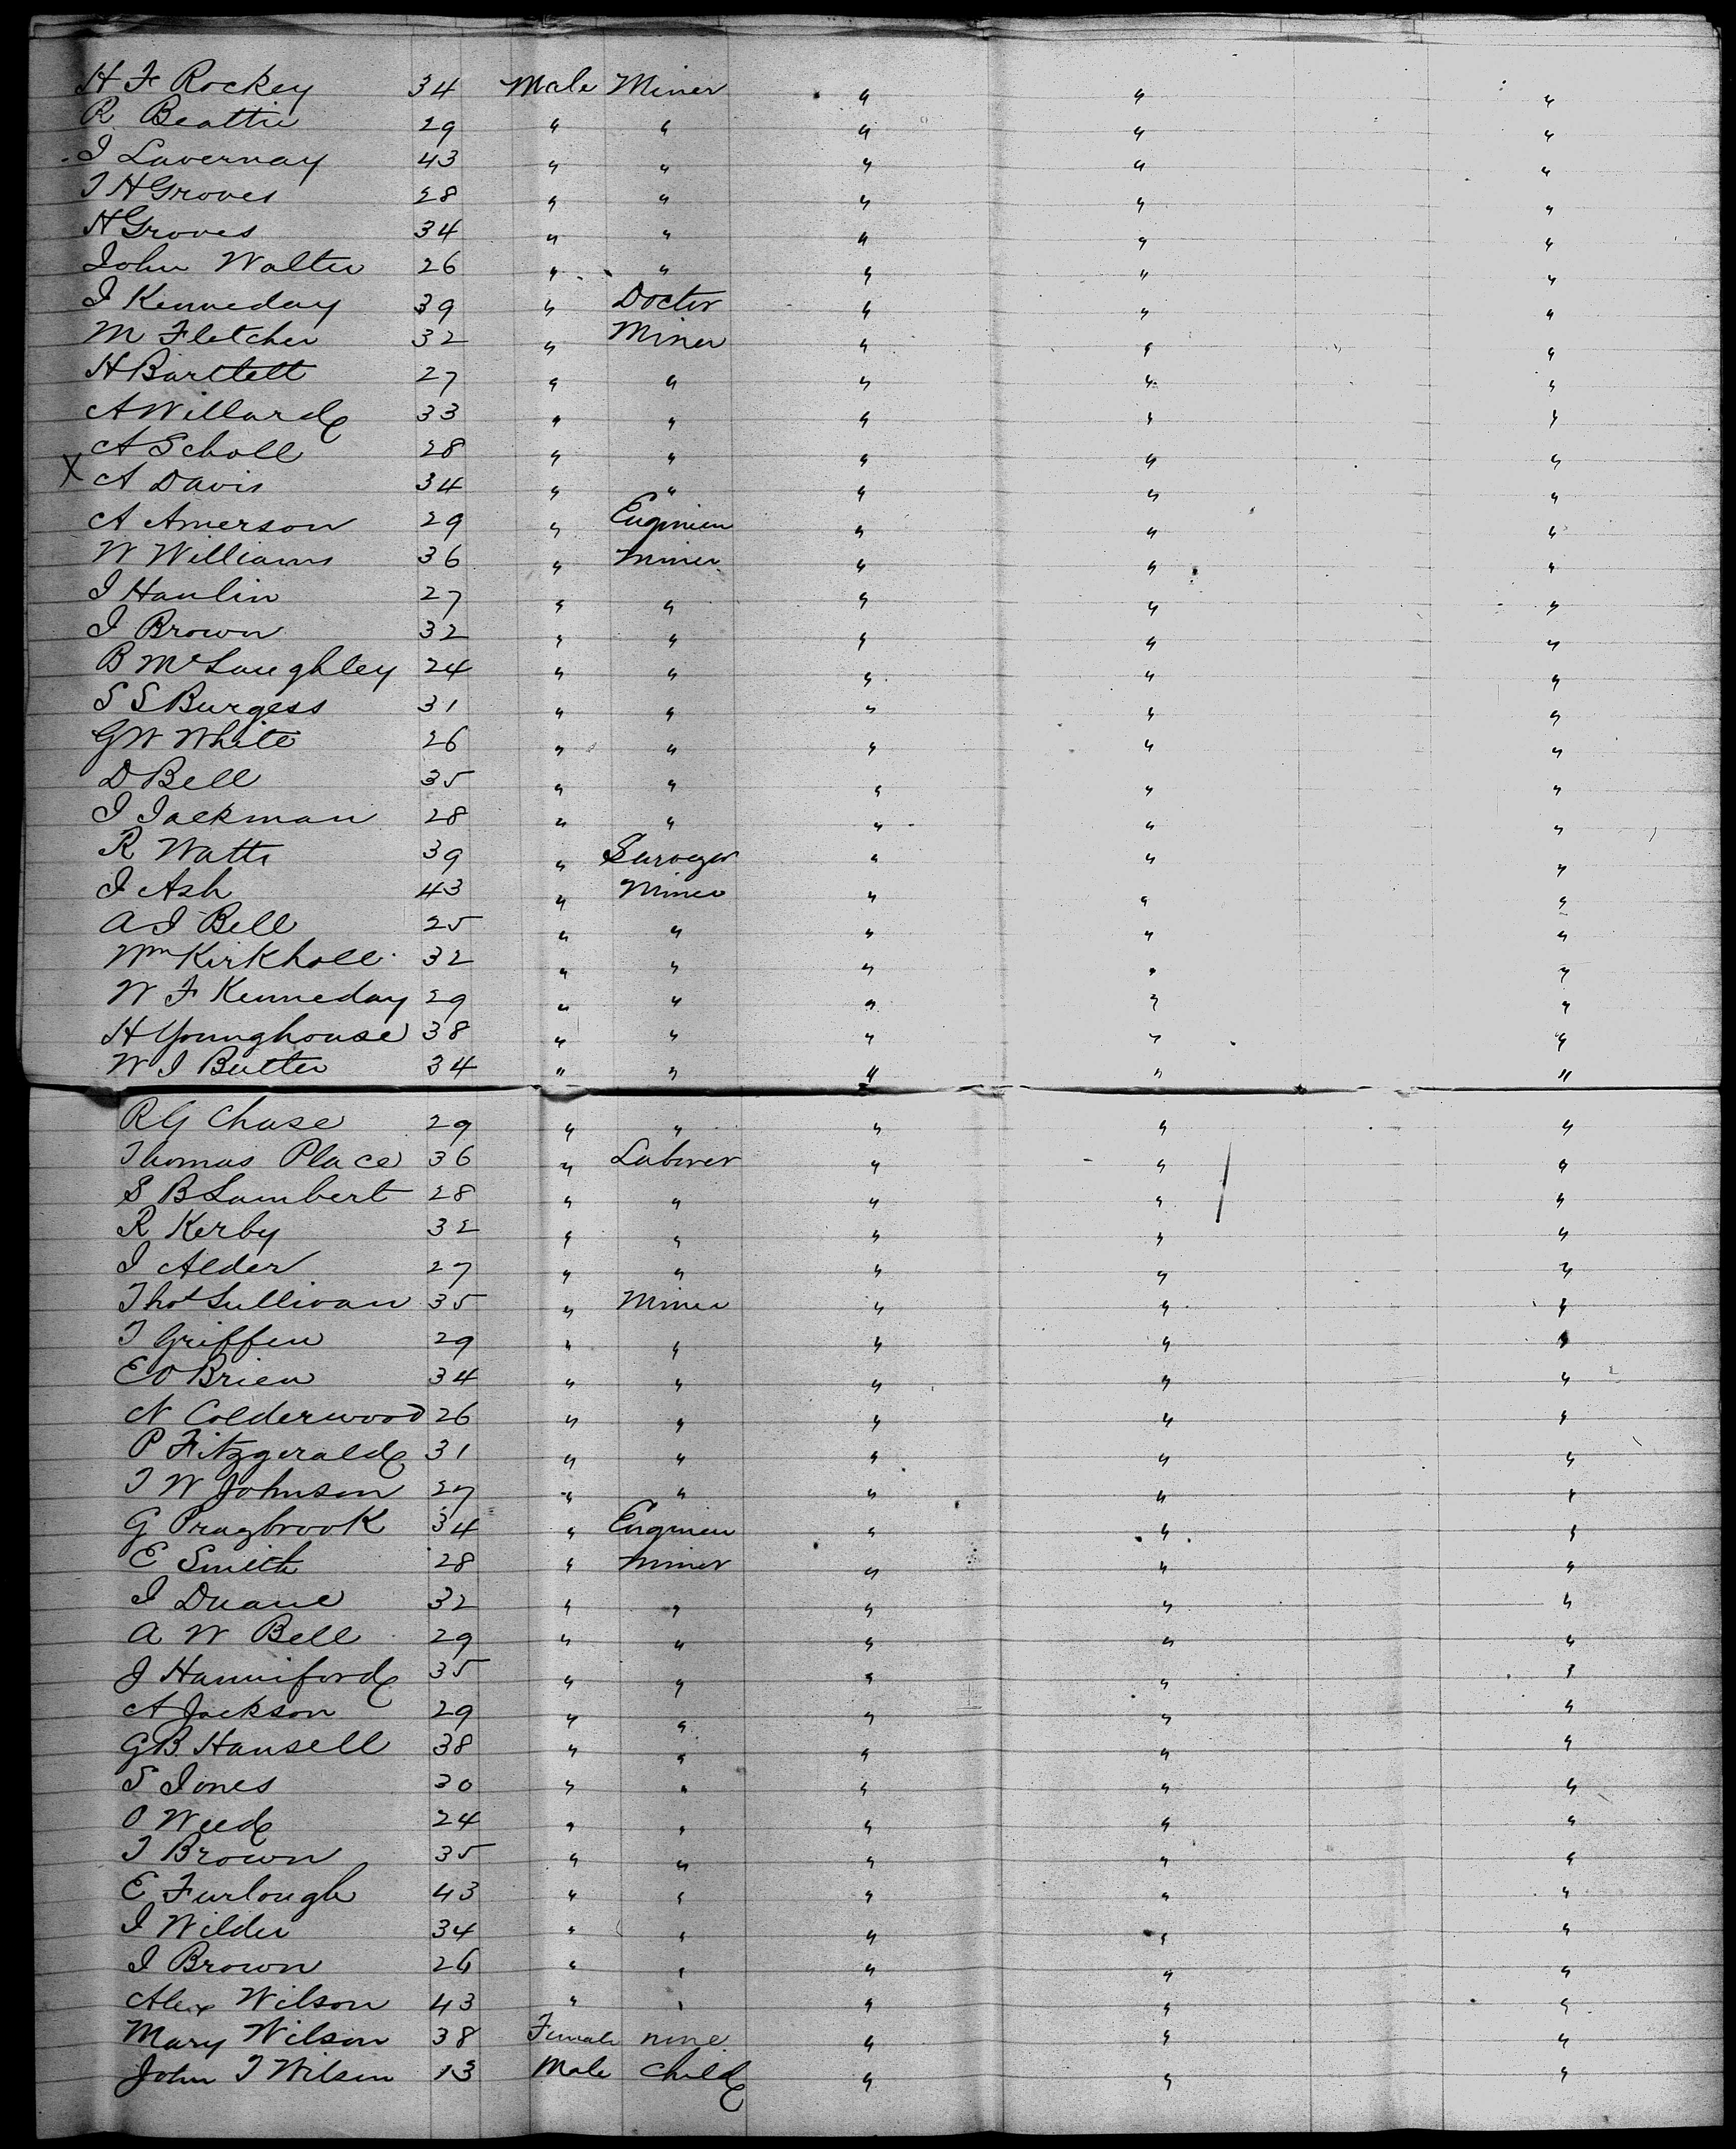 H F Rockey 34 Male Miner " " "
R Beattie 29 " " " " "
J Lavernay 43 " " " " "
T H Groves 28 " " " " "
H Groves 34 " " " " "
John Walter 26 " " " " "
J Kenneday 39 " Doctor " " "
M Fletcher 32 " Miner " " "
H Bartlett 27 " " " " "
A Willard 33 " " " " "
A Scholl 28 " " " " "
X A Davis 34 " " " " "
A Amerson 29 " Enginier " " "
W Williams 36 " Miner " " "
J Hanlin 27 " " " " "
J Brown 32 " " " " "
B McLaughley 24 " " " " "
S S Burgess 31 " " " " "
G W White 26 " " " " "
D Bell 35 " " " " "
J Jackman 28 " " " " "
R Watts 39 " Surveyor " " "
J Ash 43 " Miner " " "
A J Bell 25 " " " " "
Wm Kirkholl 32 " " " " "
W F Kenneday 29 " " " " "
H Younghouse 38 " " " " "
W J Butter 34 " " " " "
R G Chase 29 " " " " "
Thomas Place 36 " Laborer " " "
S B Lambert 28 " " " " "
R Kerby 32 " " " " "
J Alder 27 " " " " "
Thos Sullivan 35 " Miner " " "
T Griffen 29 " " " " "
E O Brien 34 " " " " "
N Colderwood 26 " " " " "
P Fitzgerald 31 " " " " "
T W Johnson 27 " " " " "
G Prazbrook 34 " Enginier " " "
E Smith 28 " Miner " " "
J Duane 32 " " " " "
A W Bell 29 " " " " "
J Hanniford 35 " " " " "
A Jackson 29 " " " " "
G B Hansell 38 " " " " "
S Jones 30 " " " " "
O Weed 24 " " " " "
T Brown 35 " " " " "
E Furlough 43 " " " " "
J Wilder 34 " " " " "
J Brown 26 " " " " "
Alex Wilson 43 " " " " "
Mary Wilson 38 Female none " " "
John T Wilson 13 Male Child " " "